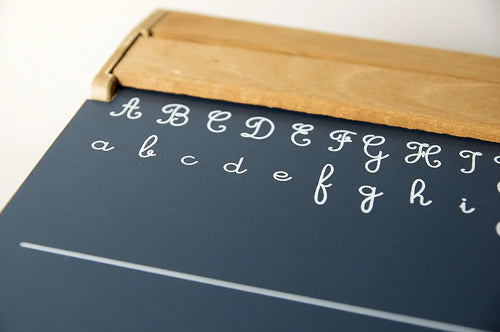 A B C D E F G H I
a b c d e f g h i